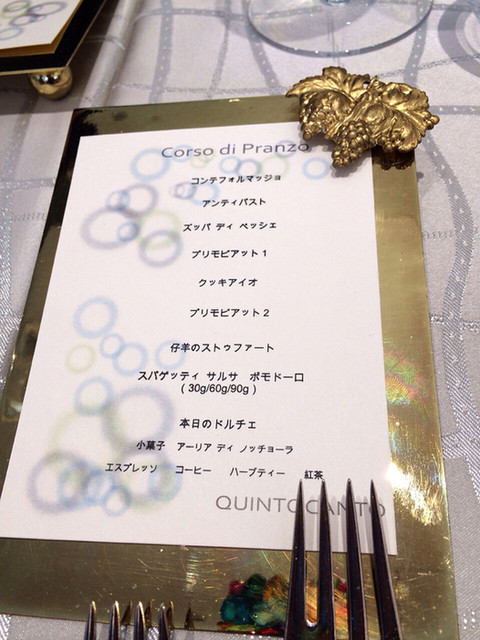 Corso di Pranzo
コンテフォルマッジョ
アンティパスト
ズッパ ディ ペッシェ
プリモピアット1
クッキアイオ
プリモピアット2
仔羊のストゥファート
スパゲッティ サルサ ポモドーロ
(30g/60g/90g)
本日のドルチェ
小菓子 アーリア ディ ノッチョーラ
エスプレッソ コーヒー ハーブティー 紅茶
QUINTOCANTO